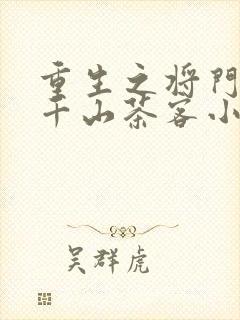 重生之将门
千山茶客小
吴群虎